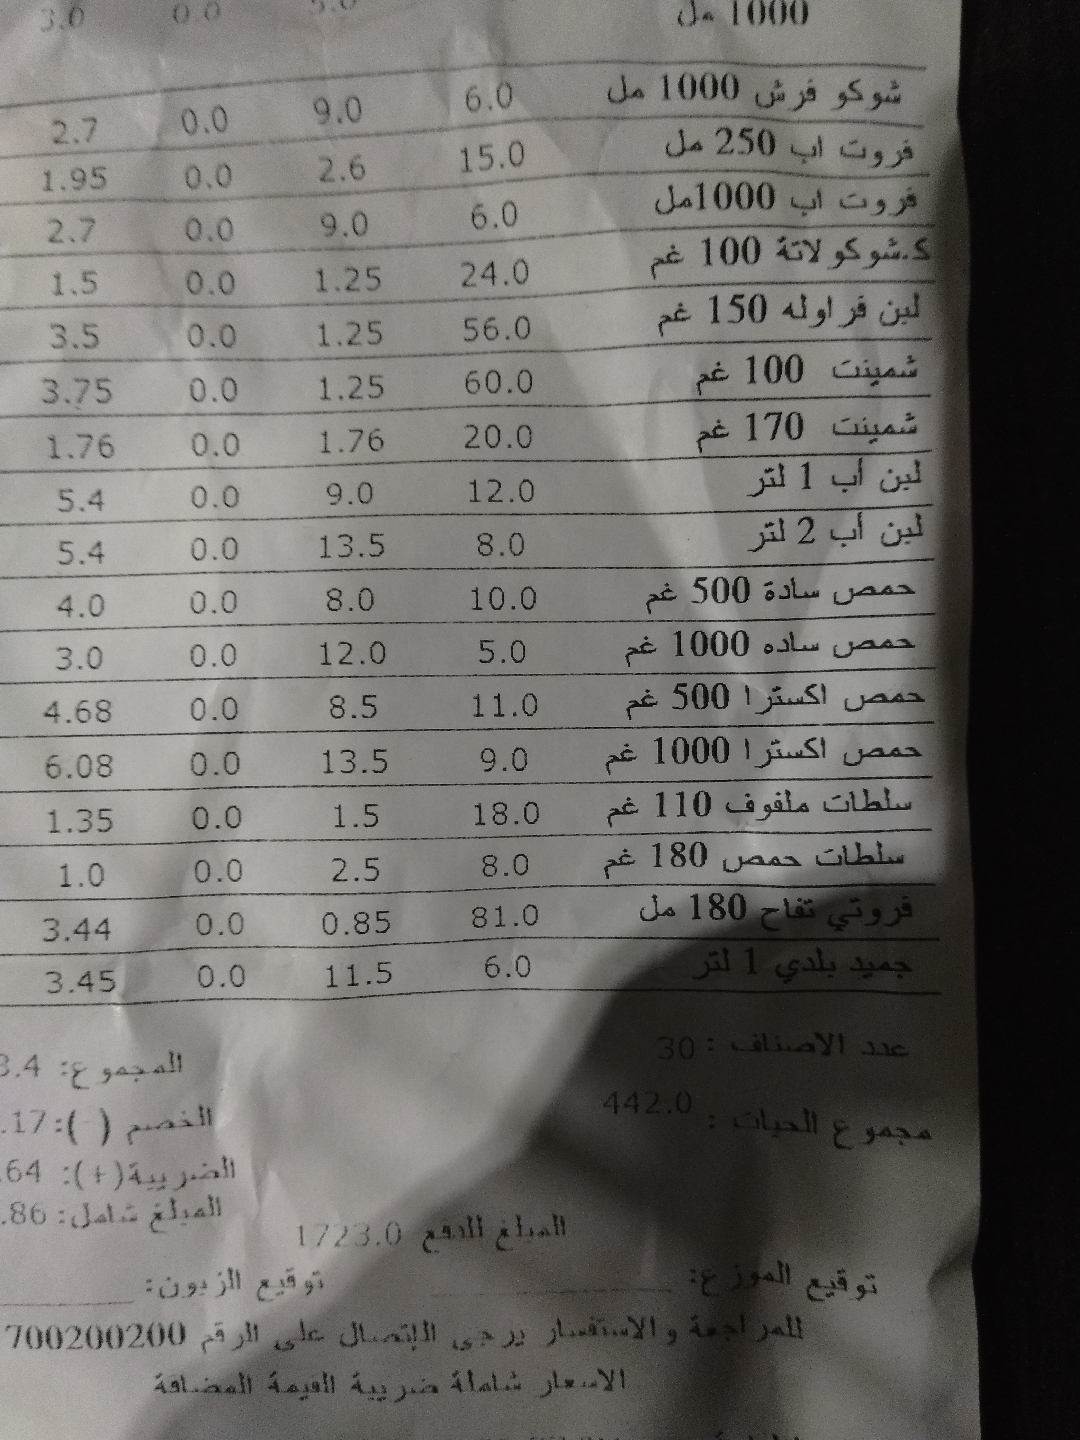 1000 مل 5.0 0.0 3.0
شوكو فرش 1000 مل 6.0 9.0 0.0 2.7
فروت اب 250 مل 15.0 2.6 0.0 1.95
فروت اب 1000مل 6.0 9.0 0.0 2.7
ك.شوكولاتة 100 غم 24.0 1.25 0.0 1.5
لبن فراوله 150 غم 56.0 1.25 0.0 3.5
شمينت 100 غم 60.0 1.25 0.0 3.75
شمينت 170 غم 20.0 1.76 0.0 1.76
لبن أب 1 لتر 12.0 9.0 0.0 5.4
لبن أب 2 لتر 8.0 13.5 0.0 5.4
حمص سادة 500 غم 10.0 8.0 0.0 4.0
حمص ساده 1000 غم 5.0 12.0 0.0 3.0
حمص اكسترا 500 غم 11.0 8.5 0.0 4.68
حمص اكسترا 1000 غم 9.0 13.5 0.0 6.08
سلطات ملفوف 110 غم 18.0 1.5 0.0 1.35
سلطات حمص 180 غم 8.0 2.5 0.0 1.0
فروتي تفاح 180 مل 81.0 0.85 0.0 3.44
جميد بلدي 1 لتر 6.0 11.5 0.0 3.45
عدد الاصناف : 30 المجموع: 3.4
مجموع الحبات : 442.0 الخصم (-): .17
الضريبة(+): .64
المبلغ شامل: .86
المبلغ للدفع 1723.0
توقيع الموزع: توقيع الزبون:
للمراجعة والاستفسار يرجى الإتصال على الرقم 700200200
الاسعار شاملة ضريبة القيمة المضافة